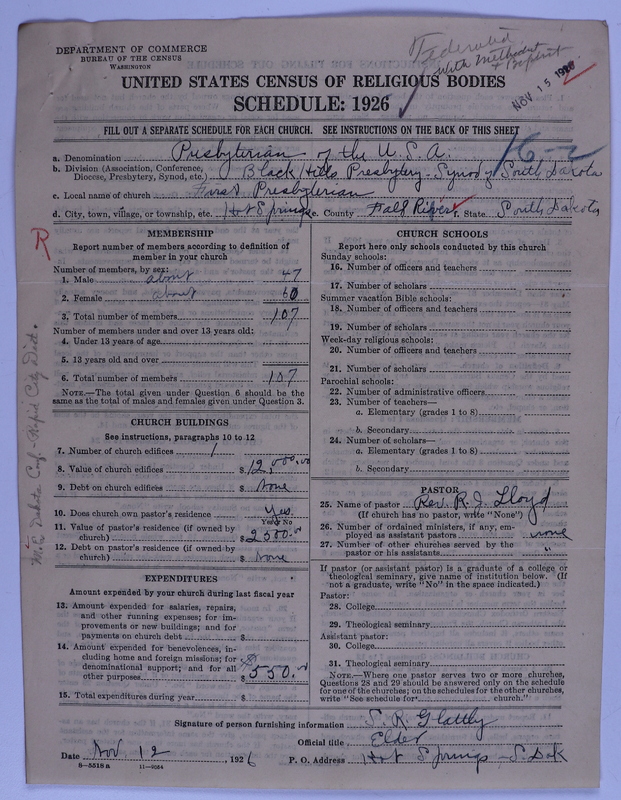 DEPARTMENT OF COMMERCE
BUREAU OF THE CENSUS
WASHINGTON
Federated
with Methodist
+ Baptist
NOV 15 1926
UNITED STATES CENSUS OF RELIGIOUS BODIES
SCHEDULE: 1926
FILL OUT A SEPARATE SCHEDULE FOR EACH CHURCH. SEE INSTRUCTIONS ON THE BACK OF THIS SHEET
16-2
a. Denomination Presbyterian of the U.S.A.
b. Division (Association, Conference, Diocese, Presbytery, Synod, etc.) Black Hills Presbytery - Synod South Dakota
c. Local name of church First Presbyterian
d. City, town, village, or township, etc. Hot Springs e. County Fall River f. State South Dakota
R
M.E. Dakota Conf - Rapid City Dist.
MEMBERSHIP
Report number of members according to definition of
member in your church
Number of members, by sex:
1. Male about 47
2. Female about 60
3. Total number of members 107
Number of members under and over 13 years old:
4. Under 13 years of age
5. 13 years old and over
6. Total number of members 107
NOTE.—The total given under Question 6 should be
same as the total of males and females given under Question 3.
CHURCH BUILDINGS
See instructions, paragraphs 10 to 12
7. Number of church edifices 1
8. Value of church edifices $12,000.00
9. Debt on church edifices $ None
10. Does church own pastor's residence Yes
Yes or No
11. Value of pastor's residence (if owned by
church) $2500.00
12. Debt on pastor's residence (if owned by
church) $ None
EXPENDITURES
Amount expended by your church during last fiscal year
13. Amount expended for salaries, repairs,
and other running expenses; for im-
provements or new buildings; and for
payments on church debt $
14. Amount expended for benevolences, in-
cluding home and foreign missions; for
denominational support; and for all
other purposes $550.00
15. Total expenditures during year $
CHURCH SCHOOLS
Report here only schools conducted by this church
Sunday schools:
16. Number of officers and teachers
17. Number of scholars
Summer vacation Bible schools:
18. Number of officers and teachers
19. Number of scholars
Week-day religious schools:
20. Number of officers and teachers
21. Number of scholars
Parochial schools:
22. Number of administrative officers
23. Number of teachers—
a. Elementary (grades 1 to 8)
b. Secondary
24. Number of scholars—
a. Elementary (grades 1 to 8)
b. Secondary
PASTOR
25. Name of pastor Rev. R. J. Lloyd
(If church has no pastor, write "None")
26. Number of ordained ministers, if any, em-
ployed as assistant pastors none
27. Number of other churches served by the
pastor or his assistants "
If pastor (or assistant pastor) is a graduate of a college or
theological seminary, give name of institution below. (If
not a graduate, write "No" in the space indicated.)
Pastor:
28. College
29. Theological seminary
Assistant pastor:
30. College
31. Theological seminary
NOTE.—Where one pastor serves two or more churches,
Questions 28 and 29 should be answered only on the schedule
for one of the churches; on the schedules for the other churches,
write "See schedule for church."
Signature of person furnishing information S. R. Glattly
Official title Elder
Date Nov 12, 1926 P. O. Address Hot Springs - S. Dak
8—5518 a 11—9064